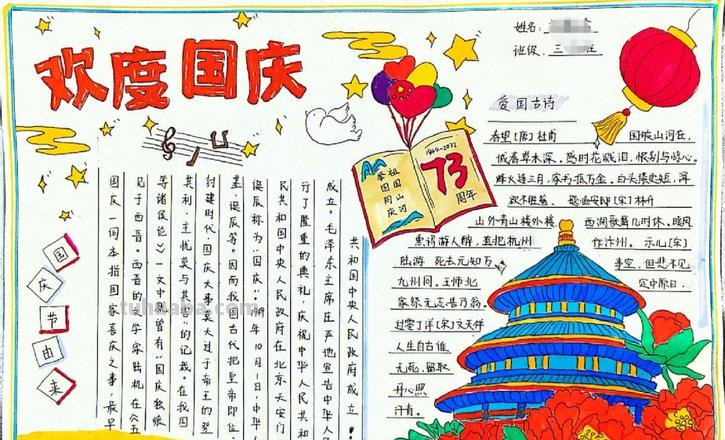 欢度国庆
姓名:
班级: 三 班
爱国古诗
春望 [唐] 杜甫 国破山河在,
城春草木深。感时花溅泪,恨别鸟惊心。
烽火连三月,家书抵万金。白头搔更短,浑
欲不胜簪。题临安邸 [宋] 林升
山外青山楼外楼 西湖歌舞几时休。暖风
熏得游人醉,直把杭州 作汴州。示儿 [宋]
陆游 死去元知万 事空,但悲不见
九州同。王师北 定中原日,
家祭无忘告乃翁。
过零丁洋 [宋] 文天祥
人生自古谁
无死,留取
丹心照
汗青。
1949-2022
73
周年
祖国同庆
举国同欢
国庆节由来
国庆一词本指国家喜庆之事,最早
见于西晋。西晋的文学家陆机在《五
等诸侯论》一文中就曾有“国庆独飨
其利,主忧莫与其害”的记载。在我国
封建时代,国庆大事莫大过于帝王的登
基、诞辰等。因而我国古代把皇帝即位、
诞辰称为国庆。1949年10月1日,中华人
民共和国中央人民政府在北京天安门
行了隆重的典礼,庆祝中华人民共和
成立。毛泽东主席庄严地宣告中华人民
共和国中央人民政府成立!